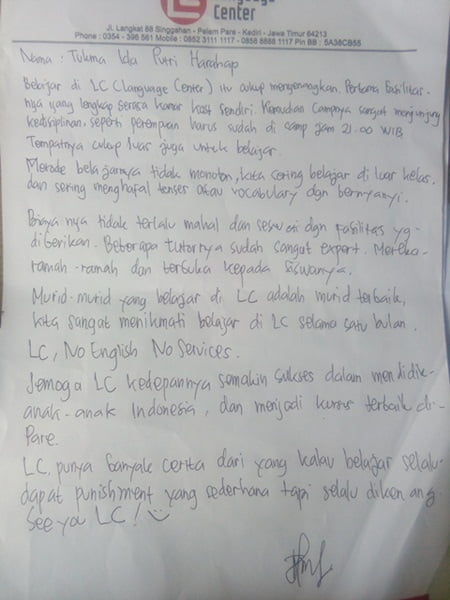 Language
Center
Jl. Langkat 88 Singgahan - Pelem Pare - Kediri - Jawa Timur 64213
Phone : 0354 - 396 561 Mobile : 0852 3111 1117 - 0858 8888 1117 Pin BB : 5A38CB55
Nama : Tukma Ida Putri Harahap
Belajar di LC (Language Center) itu cukup menyenangkan. Pertama fasilitas-
nya yang lengkap serasa kamar kost sendiri. Kemudian Campnya sangat menjunjung
kedisiplinan, seperti perempuan harus sudah di camp jam 21.00 WIB
Tempatnya cukup luas juga untuk belajar.
Metode belajarnya tidak monoton, kita sering belajar di luar kelas,
dan sering menghafal tenses atau vocabulary dgn bernyanyi.
Biaya nya tidak terlalu mahal dan sesuai dgn fasilitas yg-
diberikan. Beberapa tutornya sudah sangat expert. Mereka-
ramah-ramah dan terbuka kepada siswanya.
Murid-murid yang belajar di LC adalah murid terbaik,
kita sangat menikmati belajar di LC selama satu bulan.
LC, No English No Services.
Semoga LC kedepannya semakin sukses dalam mendidik-
anak-anak Indonesia, dan menjadi kursus terbaik di-
Pare.
LC, punya banyak cerita dari yang kalau belajar selalu-
dapat punishment yang sederhana tapi selalu dikenang.
See you LC!